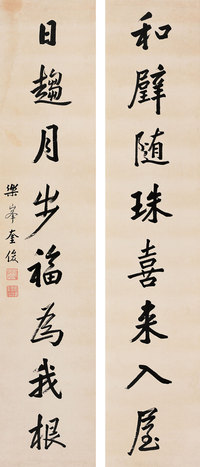 和璧随珠喜来入屋
日趨月步福為我根
樂峯奎俊